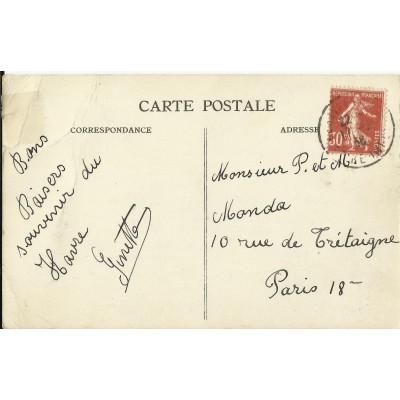 CARTE POSTALE
CORRESPONDANCE
ADRESSE
Bons
Baisers
souvenir du
Havre
Ginette
Monsieur P. et M
Manda
10 rue de Trétaigne
Paris 18
REPUBLIQUE FRANÇAISE
30